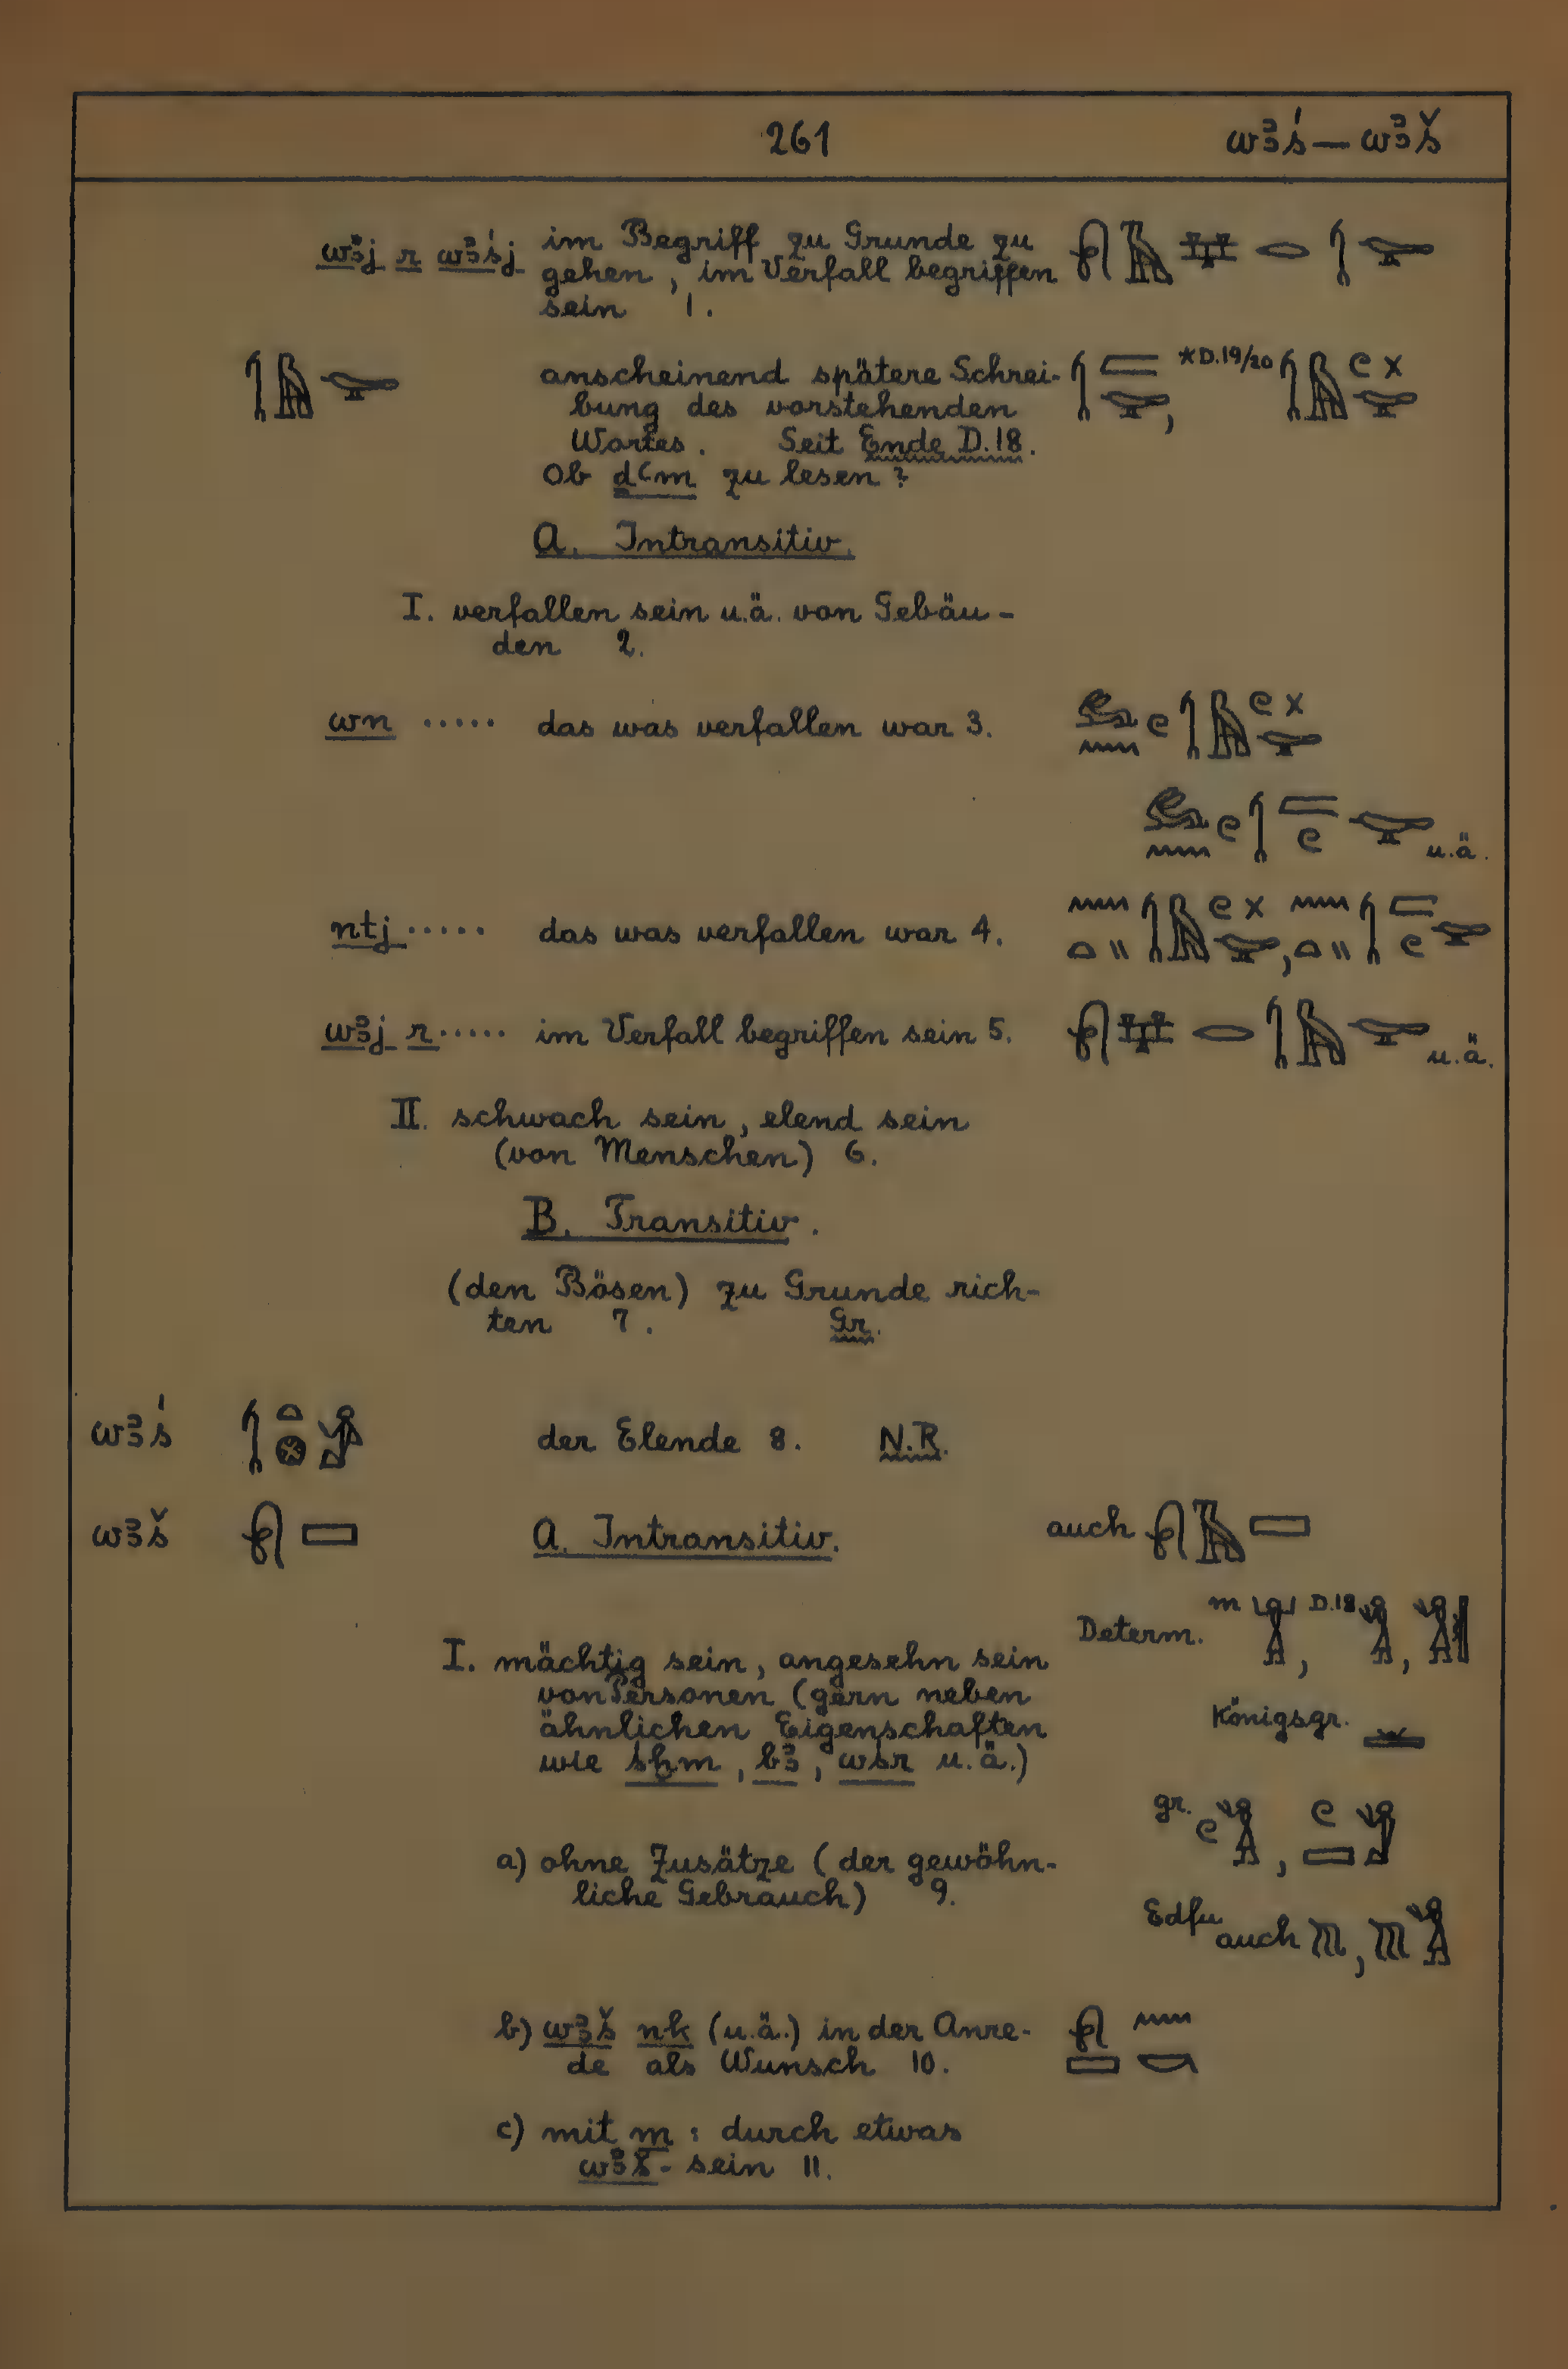 261 wꜣś — wꜣš
wꜣj r wꜣśj im Begriff zu Grunde zu
gehen, im Verfall begriffen
sein 1.
anscheinend spätere Schrei- *D.19/20
bung des vorstehenden
Wortes. Seit Ende D.18.
Ob ḏꜥm zu lesen?
A. Intransitiv.
I. verfallen sein u.ä. von Gebäu-
den 2.
wn ..... das was verfallen war 3.
u.ä.
ntj ..... das was verfallen war 4.
wꜣj r ..... im Verfall begriffen sein 5. u.ä.
II. schwach sein, elend sein
(von Menschen) 6.
B. Transitiv.
(den Bösen) zu Grunde rich-
ten 7. Gr.
wꜣś der Elende 8. N.R.
wꜣš A. Intransitiv. auch
Determ. m D.18
I. mächtig sein, angesehn sein
von Personen (gern neben
ähnlichen Eigenschaften Königsgr.
wie śḫm, bꜣ, wśr u.ä.)
gr.
a) ohne Zusätze (der gewöhn-
liche Gebrauch) 9.
Edfu auch
b) wꜣš nk (u.ä.) in der Anre-
de als Wunsch 10.
c) mit m: durch etwas
wꜣš-sein 11.